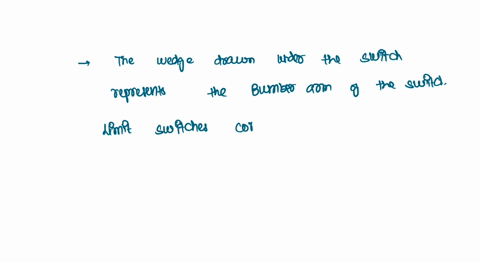 → The wedge drawn under the switch
represents the Bumber arm of the switch.
Limit switches cor